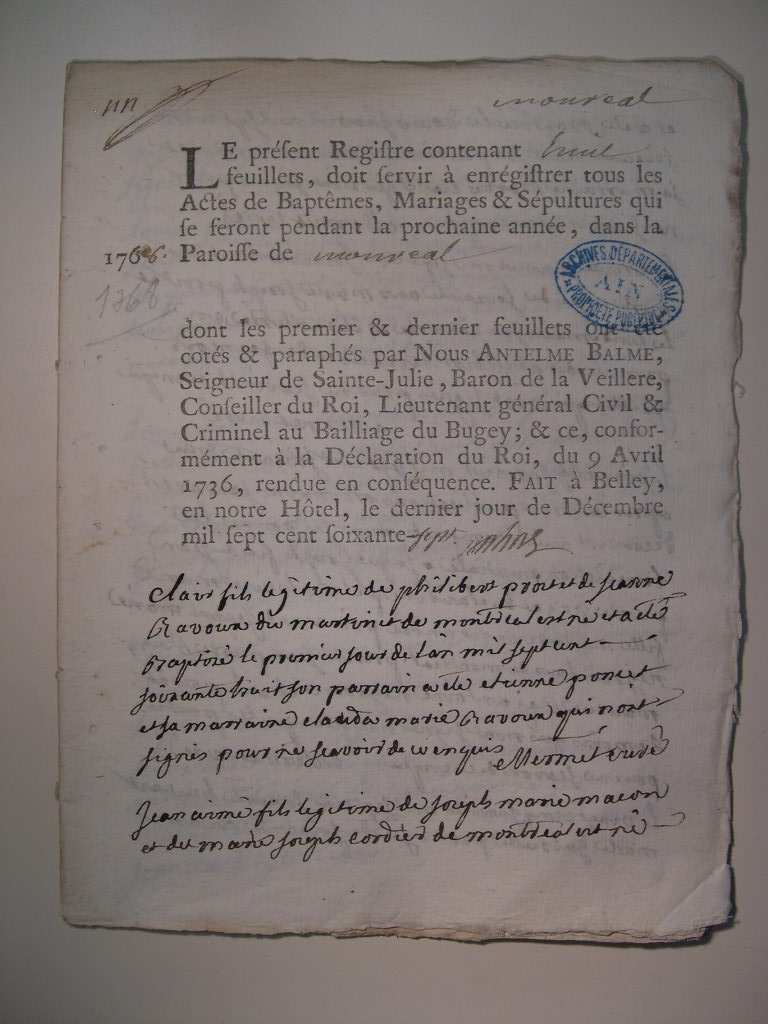 monreal
LE préſent Regiſtre contenant huit
feuillets, doit ſervir à enrégiſtrer tous les
Actes de Baptêmes, Mariages & Sépultures qui
ſe feront pendant la prochaine année, dans la
1768. Paroiſſe de monreal
1768
ARCHIVES DÉPARTEMENTALES
AIN
PROPRIÉTÉ PUBLIQUE
dont les premier & dernier feuillets ont été
cotés & paraphés par Nous ANTELME BALME,
Seigneur de Sainte-Julie, Baron de la Veillere,
Conſeiller du Roi, Lieutenant général Civil &
Criminel au Bailliage du Bugey; & ce, confor-
mément à la Déclaration du Roi, du 9 Avril
1736, rendue en conſéquence. FAIT à Belley,
en notre Hôtel, le dernier jour de Décembre
mil ſept cent ſoixante-ſept
Clair fils legitime de philibert prost et de jeanne
Ravoux du martinet de montreal est né et a été
Baptisé le premier jour de l'an mil sept cent
soixante huit son parrain a été etienne poncet
et sa marraine clauda marie Ravoux qui n'ont
signés pour ne scavoir de ce enquis Mermet curé
Jean aimé fils legitime de joseph marie macon
et de marie joseph cordier de montreal est né